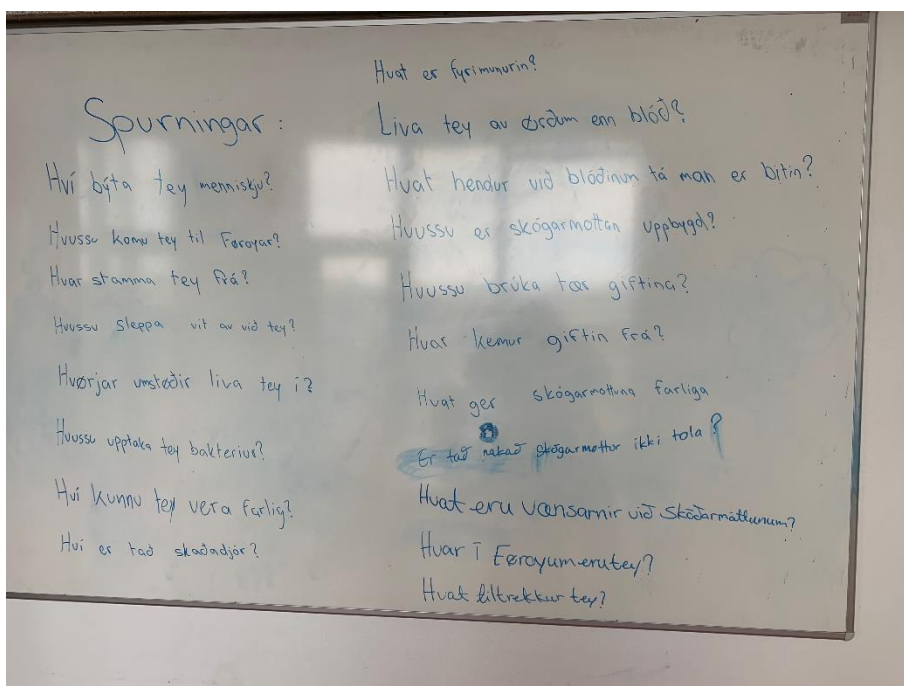 Spurningar:
Hví býta tey menneskju?
Huussu komu tey til Føroyar?
Hvar stamma tey frá?
Huussu sleppa vit av við tey?
Hvørjar umstøðir liva tey í?
Huussu upptaka tey bakteriur?
Hví kunnu tey vera farlig?
Hví er tað skaðadjór?
Hvat er fyrimunurin?
Liva tey av øðrum enn blóð?
Hvat hendur við blóðinum tá man er bitin?
Huussu er skógarmottan uppbygd?
Huussu brúka tær giftina?
Hvar kemur giftin frá?
Hvat ger skógarmottuna farliga
Er tað nakað skógarmottur ikki tola?
Hvat eru vansarnir við Skóðarmáttunum?
Hvar í Føroyum eru tey?
Hvat tiltrekkur tey?